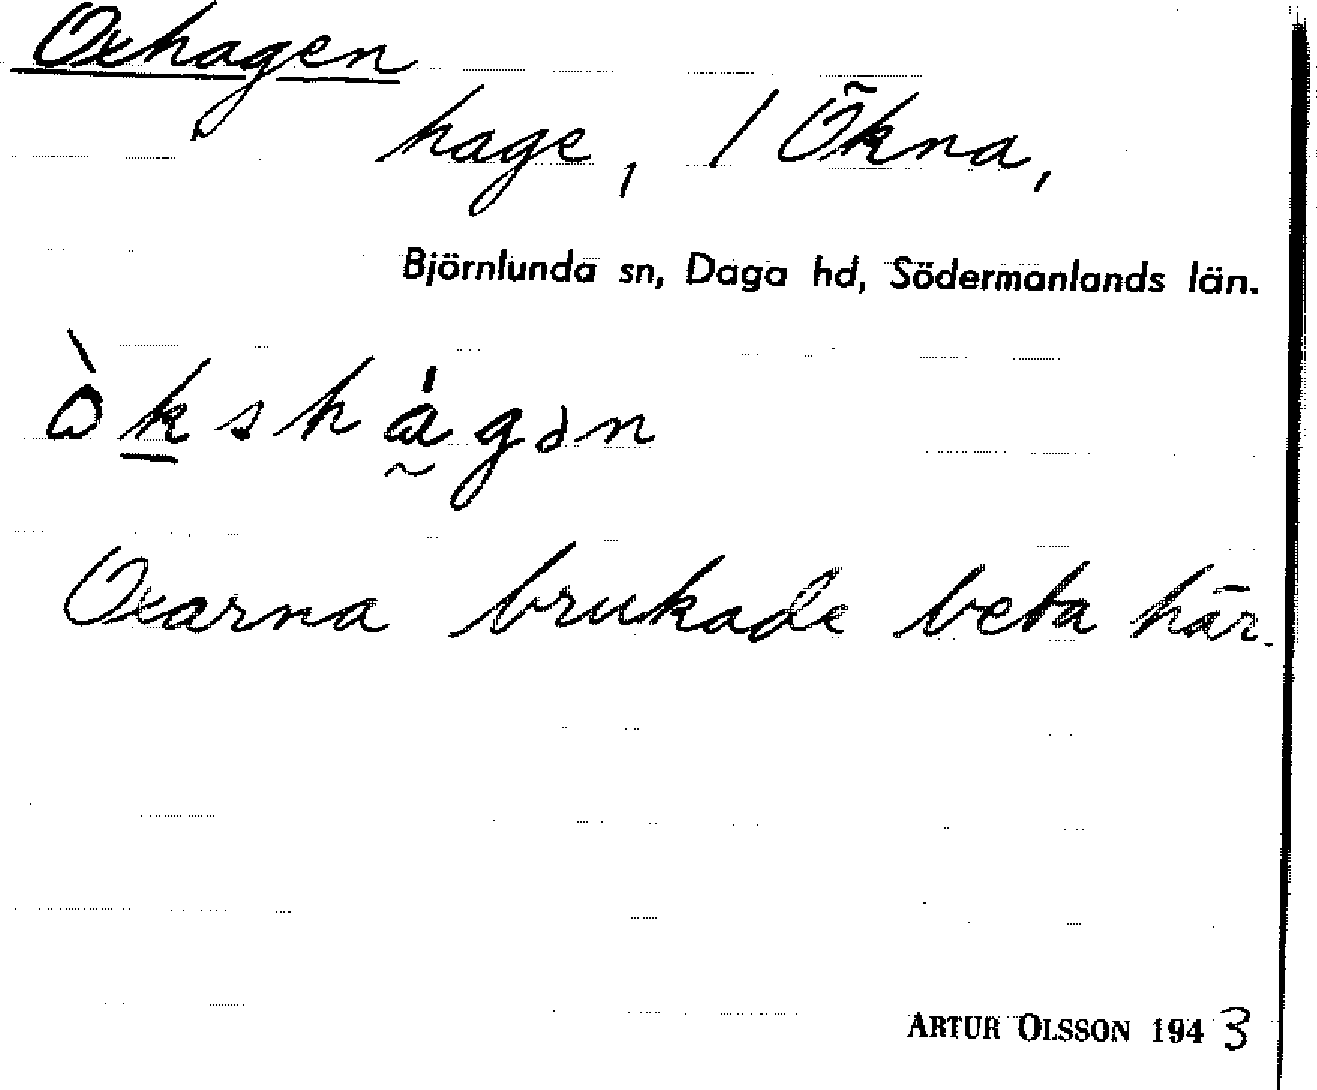 Oxhagen
hage, / Ökna,
Björnlunda sn, Daga hd, Södermanlands län.
òkshágən
Oxarna brukade beta här.
ARTUR OLSSON 1943